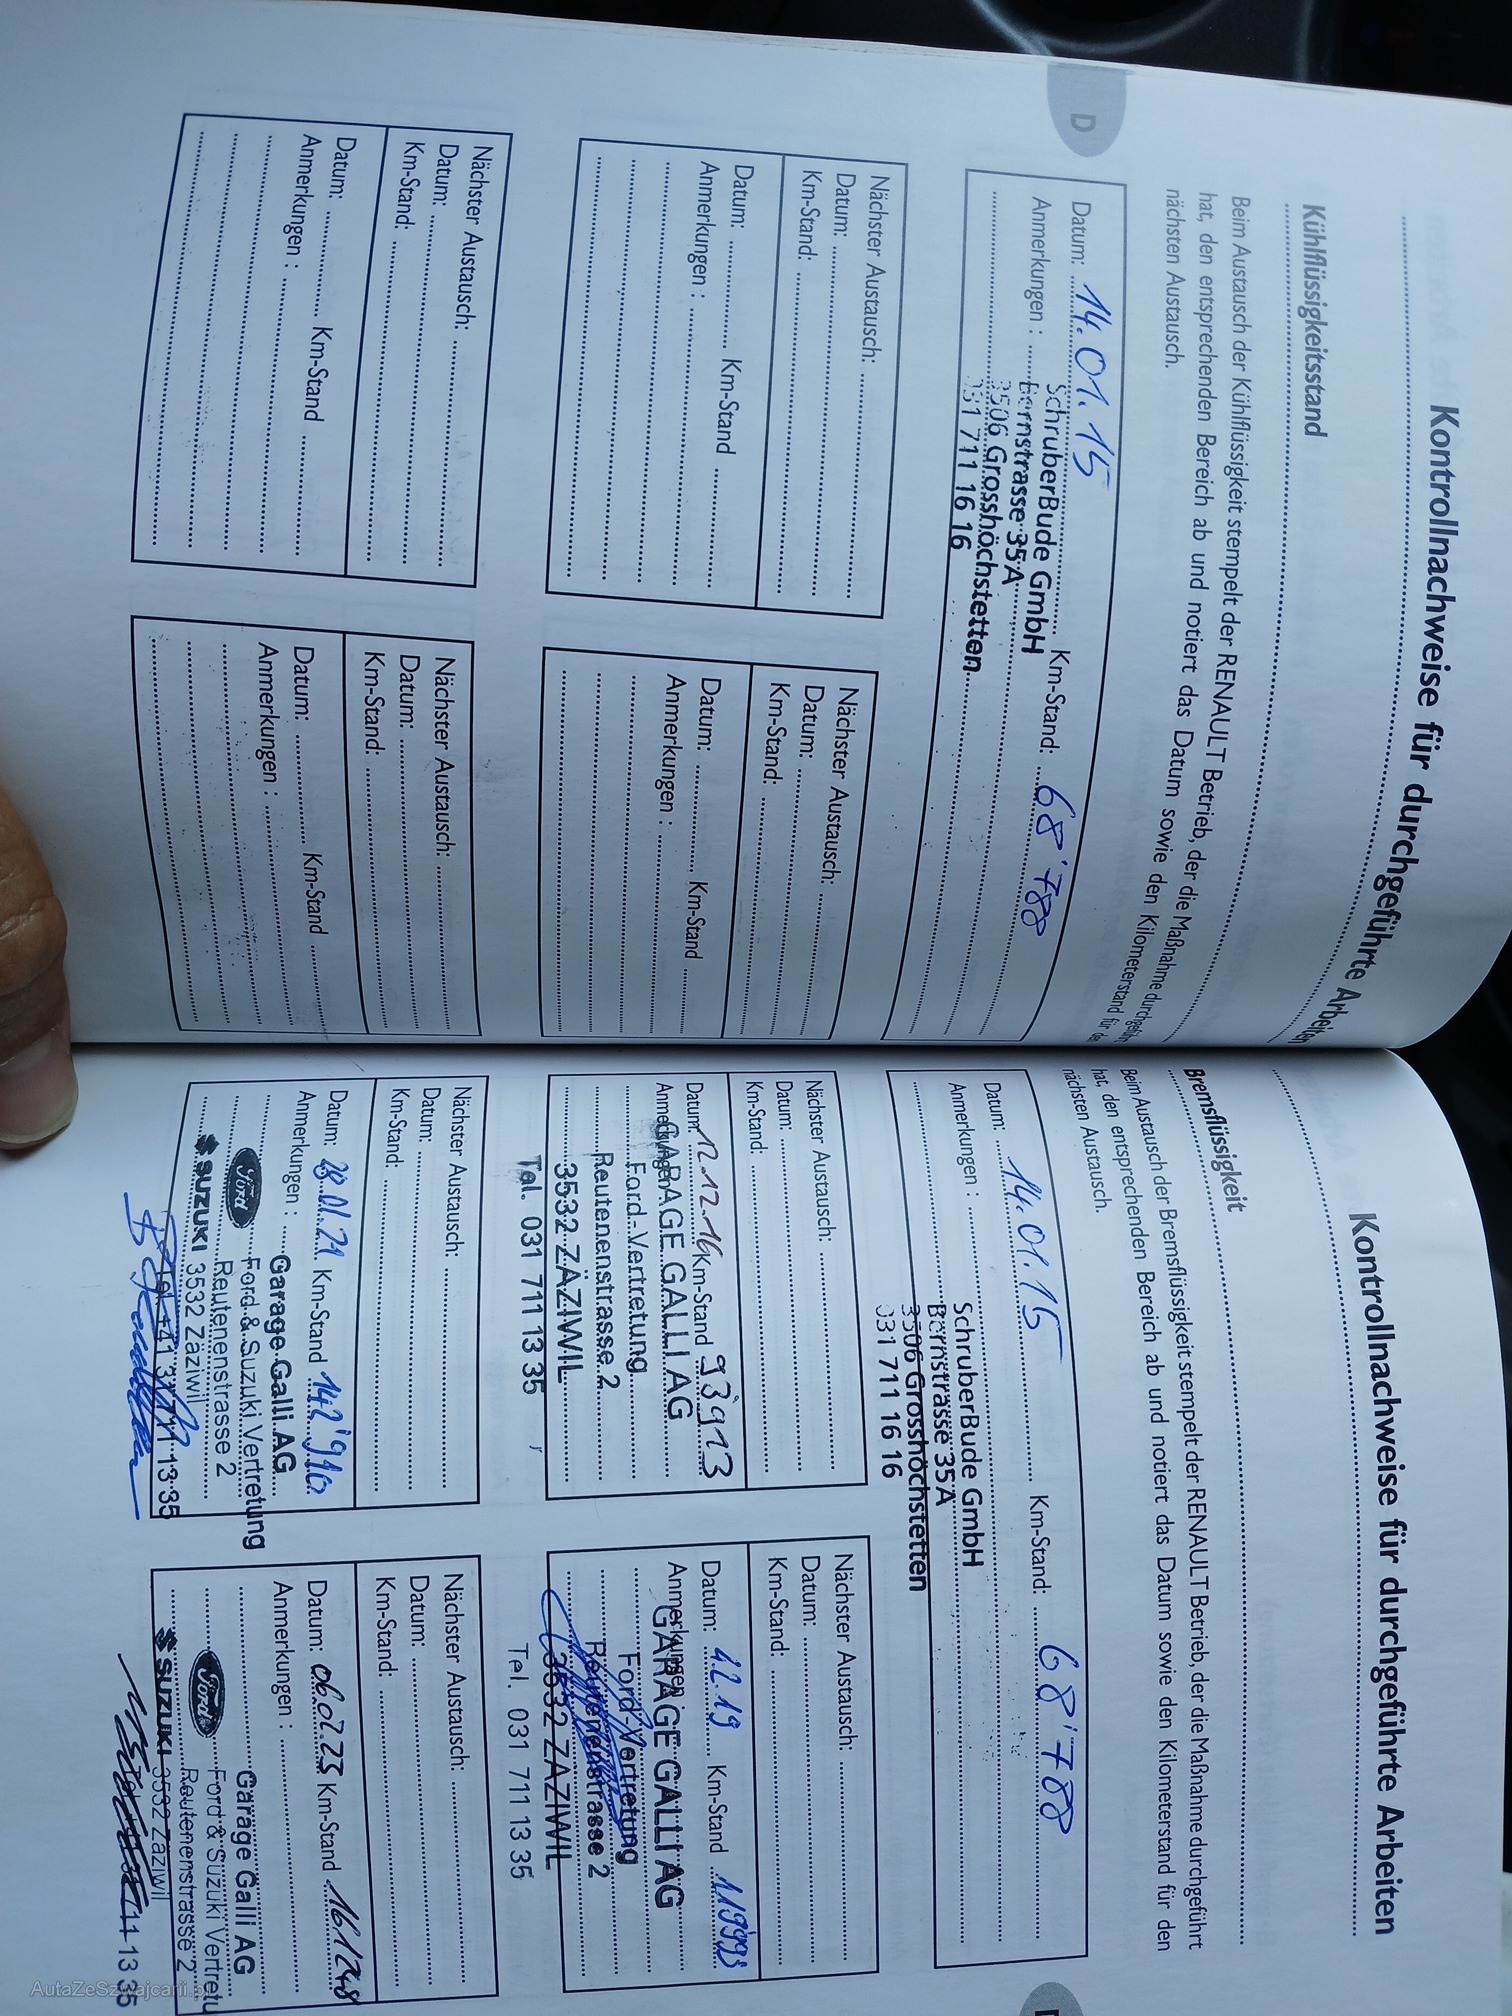 Kontrollnachweise für durchgeführte Arbeiten
Kühlflüssigkeitsstand
Beim Austausch der Kühlflüssigkeit stempelt der RENAULT Betrieb, der die Maßnahme durchgeführt
hat, den entsprechenden Bereich ab und notiert das Datum sowie den Kilometerstand für den
nächsten Austausch.
D
Datum: 14.01.15 Km-Stand: 68'788
Anmerkungen :
SchruberBude GmbH
Bernstrasse 35A
3506 Grosshöchstetten
031 711 16 16
Nächster Austausch:
Datum:
Km-Stand:
Datum: Km-Stand
Anmerkungen :
Nächster Austausch:
Datum:
Km-Stand:
Datum: Km-Stand
Anmerkungen :
Nächster Austausch:
Datum:
Km-Stand:
Datum: Km-Stand
Anmerkungen :
Nächster Austausch:
Datum:
Km-Stand:
Datum: Km-Stand
Anmerkungen :
Kontrollnachweise für durchgeführte Arbeiten
Bremsflüssigkeit
Beim Austausch der Bremsflüssigkeit stempelt der RENAULT Betrieb, der die Maßnahme durchgeführt
hat, den entsprechenden Bereich ab und notiert das Datum sowie den Kilometerstand für den
nächsten Austausch.
Datum: 14.01.15 Km-Stand: 68'788
Anmerkungen :
SchruberBude GmbH
Bernstrasse 35A
3506 Grosshöchstetten
031 711 16 16
Nächster Austausch:
Datum:
Km-Stand:
Datum: 12.12.16 Km-Stand 93'913
Anmerkungen
GARAGE GALLI AG
Ford-Vertretung
Reutenenstrasse 2
3532 ZÄZIWIL
Tel. 031 711 13 35
Nächster Austausch:
Datum:
Km-Stand:
Datum: 4.2.19 Km-Stand
Anmerkungen
GARAGE GALLI AG
Ford-Vertretung
Reutenenstrasse 2
3532 ZÄZIWIL
Tel. 031 711 13 35
Nächster Austausch:
Datum:
Km-Stand:
Datum: 28.01.21 Km-Stand 142'910
Anmerkungen :
Garage Galli AG
Ford Ford & Suzuki Vertretung
Reutenenstrasse 2
SUZUKI 3532 Zäziwil
Tel. +41 31 711 13 35
Nächster Austausch:
Datum:
Km-Stand:
Datum: 06.02.23 Km-Stand 161248
Anmerkungen :
Garage Galli AG
Ford Ford & Suzuki Vertretu
Reutenenstrasse 2
SUZUKI 3532 Zäziwil
13 35
AutaZeSzwajcarii.pl